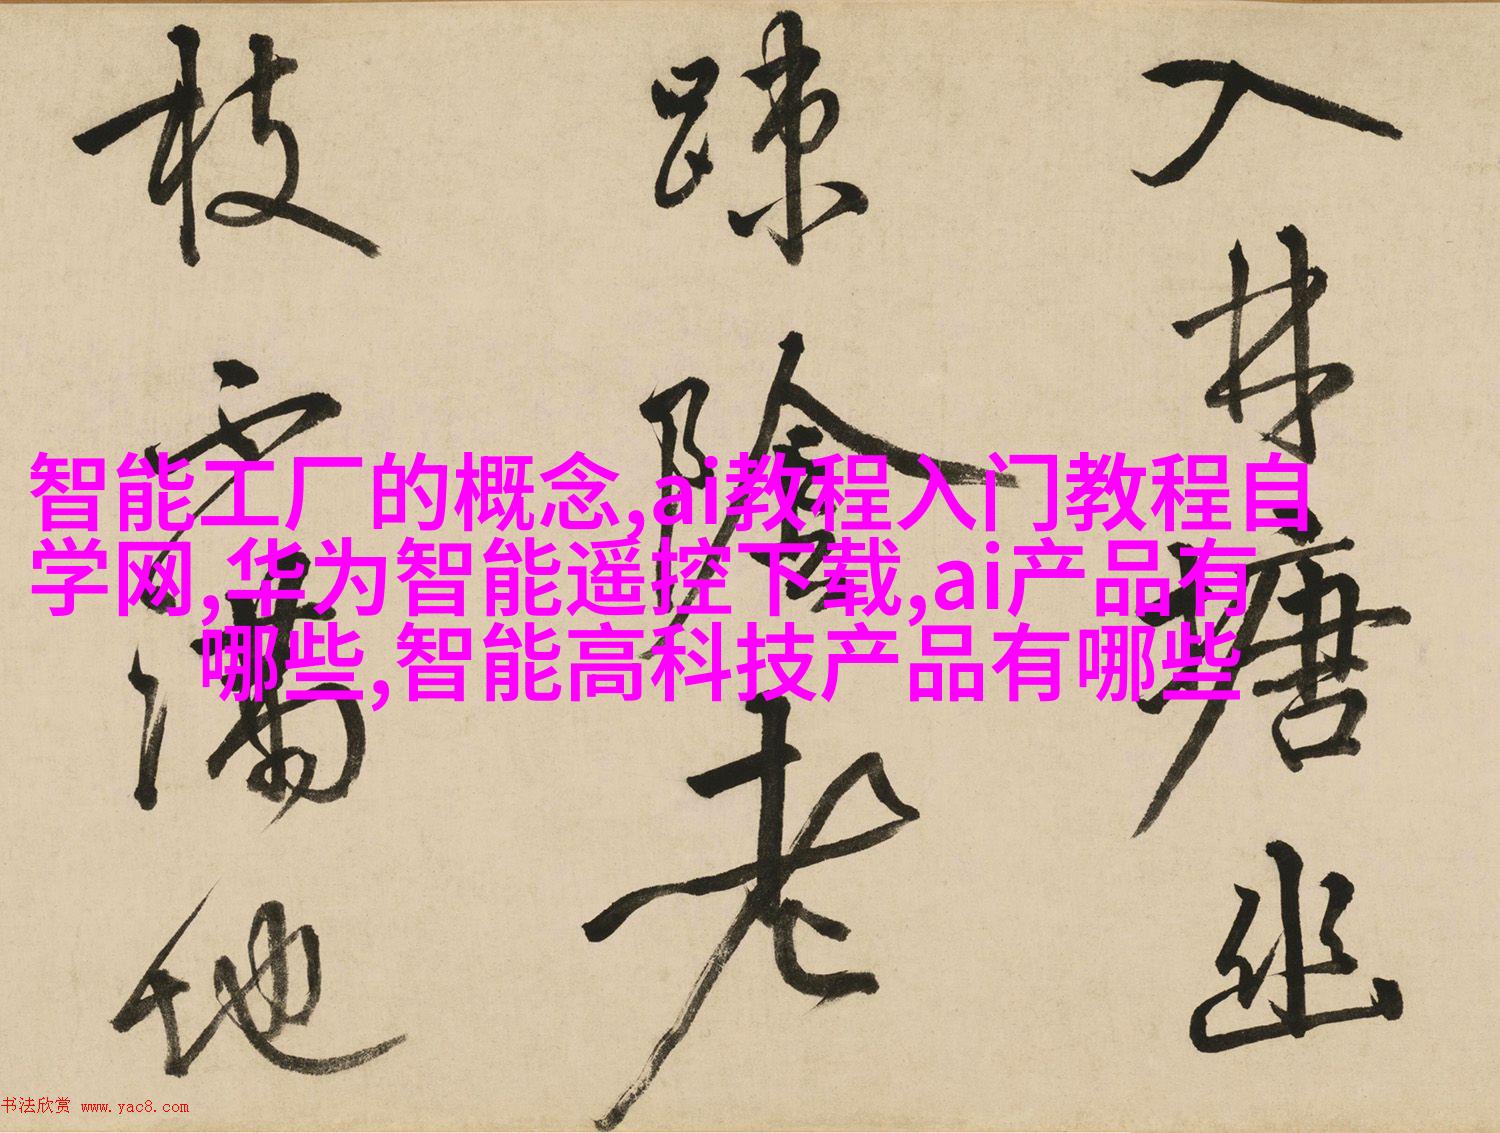 入林塘幽
踈陰老
枝滿地
智能工厂的概念,ai教程入门教程自
学网,华为智能遥控下载,ai产品有
哪些,智能高科技产品有哪些
书法欣赏 www.yac8.com